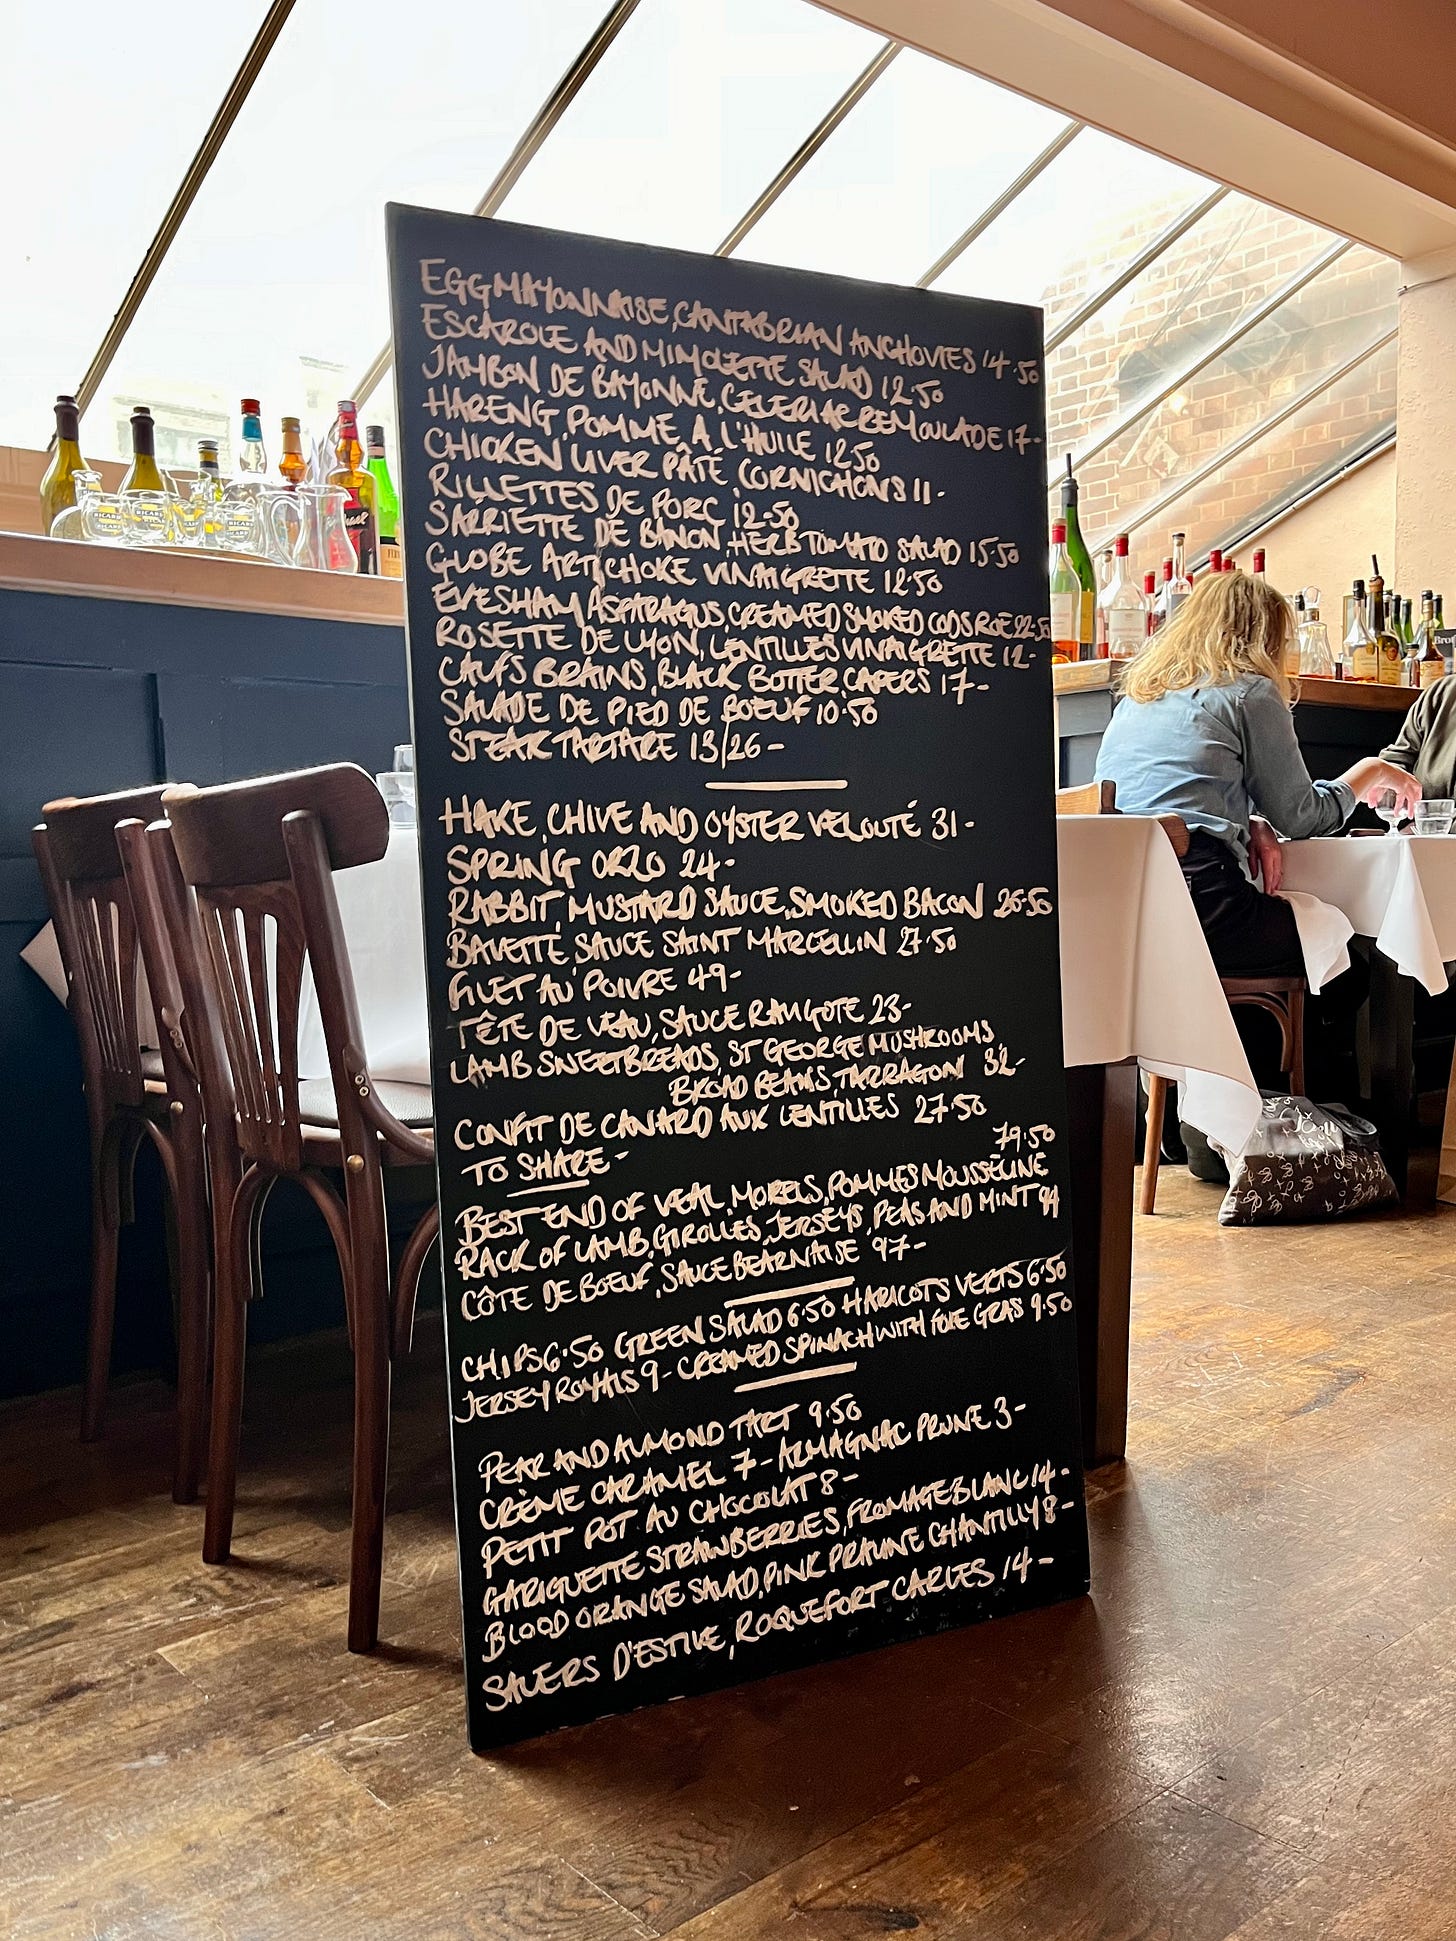 EGG MAYONNAISE, CANTABRIAN ANCHOVIES 14.50
ESCAROLE AND MIMOLETTE SALAD 12.50
JAMBON DE BAYONNE, CELERIAC REMOULADE 17-
HARENG, POMME, A L'HUILE 12.50
CHICKEN LIVER PÂTÉ, CORNICHONS 11-
RILLETTES DE PORC 12.50
SARRIETTE DE BANON, HERB TOMATO SALAD 15.50
GLOBE ARTICHOKE VINAIGRETTE 12.50
EVESHAM ASPARAGUS, CREAMED SMOKED CODS ROE 22.50
ROSETTE DE LYON, LENTILLES VINAIGRETTE 12-
CALFS BRAINS, BLACK BUTTER, CAPERS 17-
SALADE DE PIED DE BOEUF 10.50
STEAK TARTARE 13/26-
HAKE, CHIVE AND OYSTER VELOUTÉ 31-
SPRING ORZO 24-
RABBIT, MUSTARD SAUCE, SMOKED BACON 26.50
BAVETTE, SAUCE SAINT MARCELLIN 27.50
FILET AU POIVRE 49-
TÊTE DE VEAU, SAUCE RAVIGOTE 23-
LAMB SWEETBREADS, ST GEORGE MUSHROOMS,
BROAD BEANS, TARRAGON 32-
CONFIT DE CANARD AUX LENTILLES 27.50
TO SHARE-
79.50
BEST END OF VEAL, MORELS, POMMES MOUSSELINE
RACK OF LAMB, GIROLLES, JERSEYS, PEAS AND MINT 94
CÔTE DE BOEUF, SAUCE BEARNAISE 97-
CHIPS 6.50 GREEN SALAD 6.50 HARICOTS VERTS 6.50
JERSEY ROYALS 9- CREAMED SPINACH WITH FOIE GRAS 9.50
PEAR AND ALMOND TART 9.50
CRÈME CARAMEL 7- ARMAGNAC PRUNE 3-
PETIT POT AU CHOCOLAT 8-
GARIGUETTE STRAWBERRIES, FROMAGE BLANC 14-
BLOOD ORANGE SALAD, PINK PRALINE CHANTILLY 8-
SALERS D'ESTIVE, ROQUEFORT CARLES 14-
RICARD
RICARD
RICARD